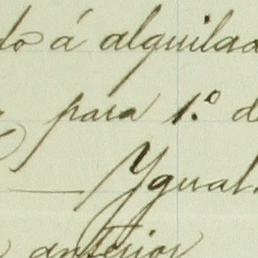 do á alquilad
para 1.º d
Ygual
anterior